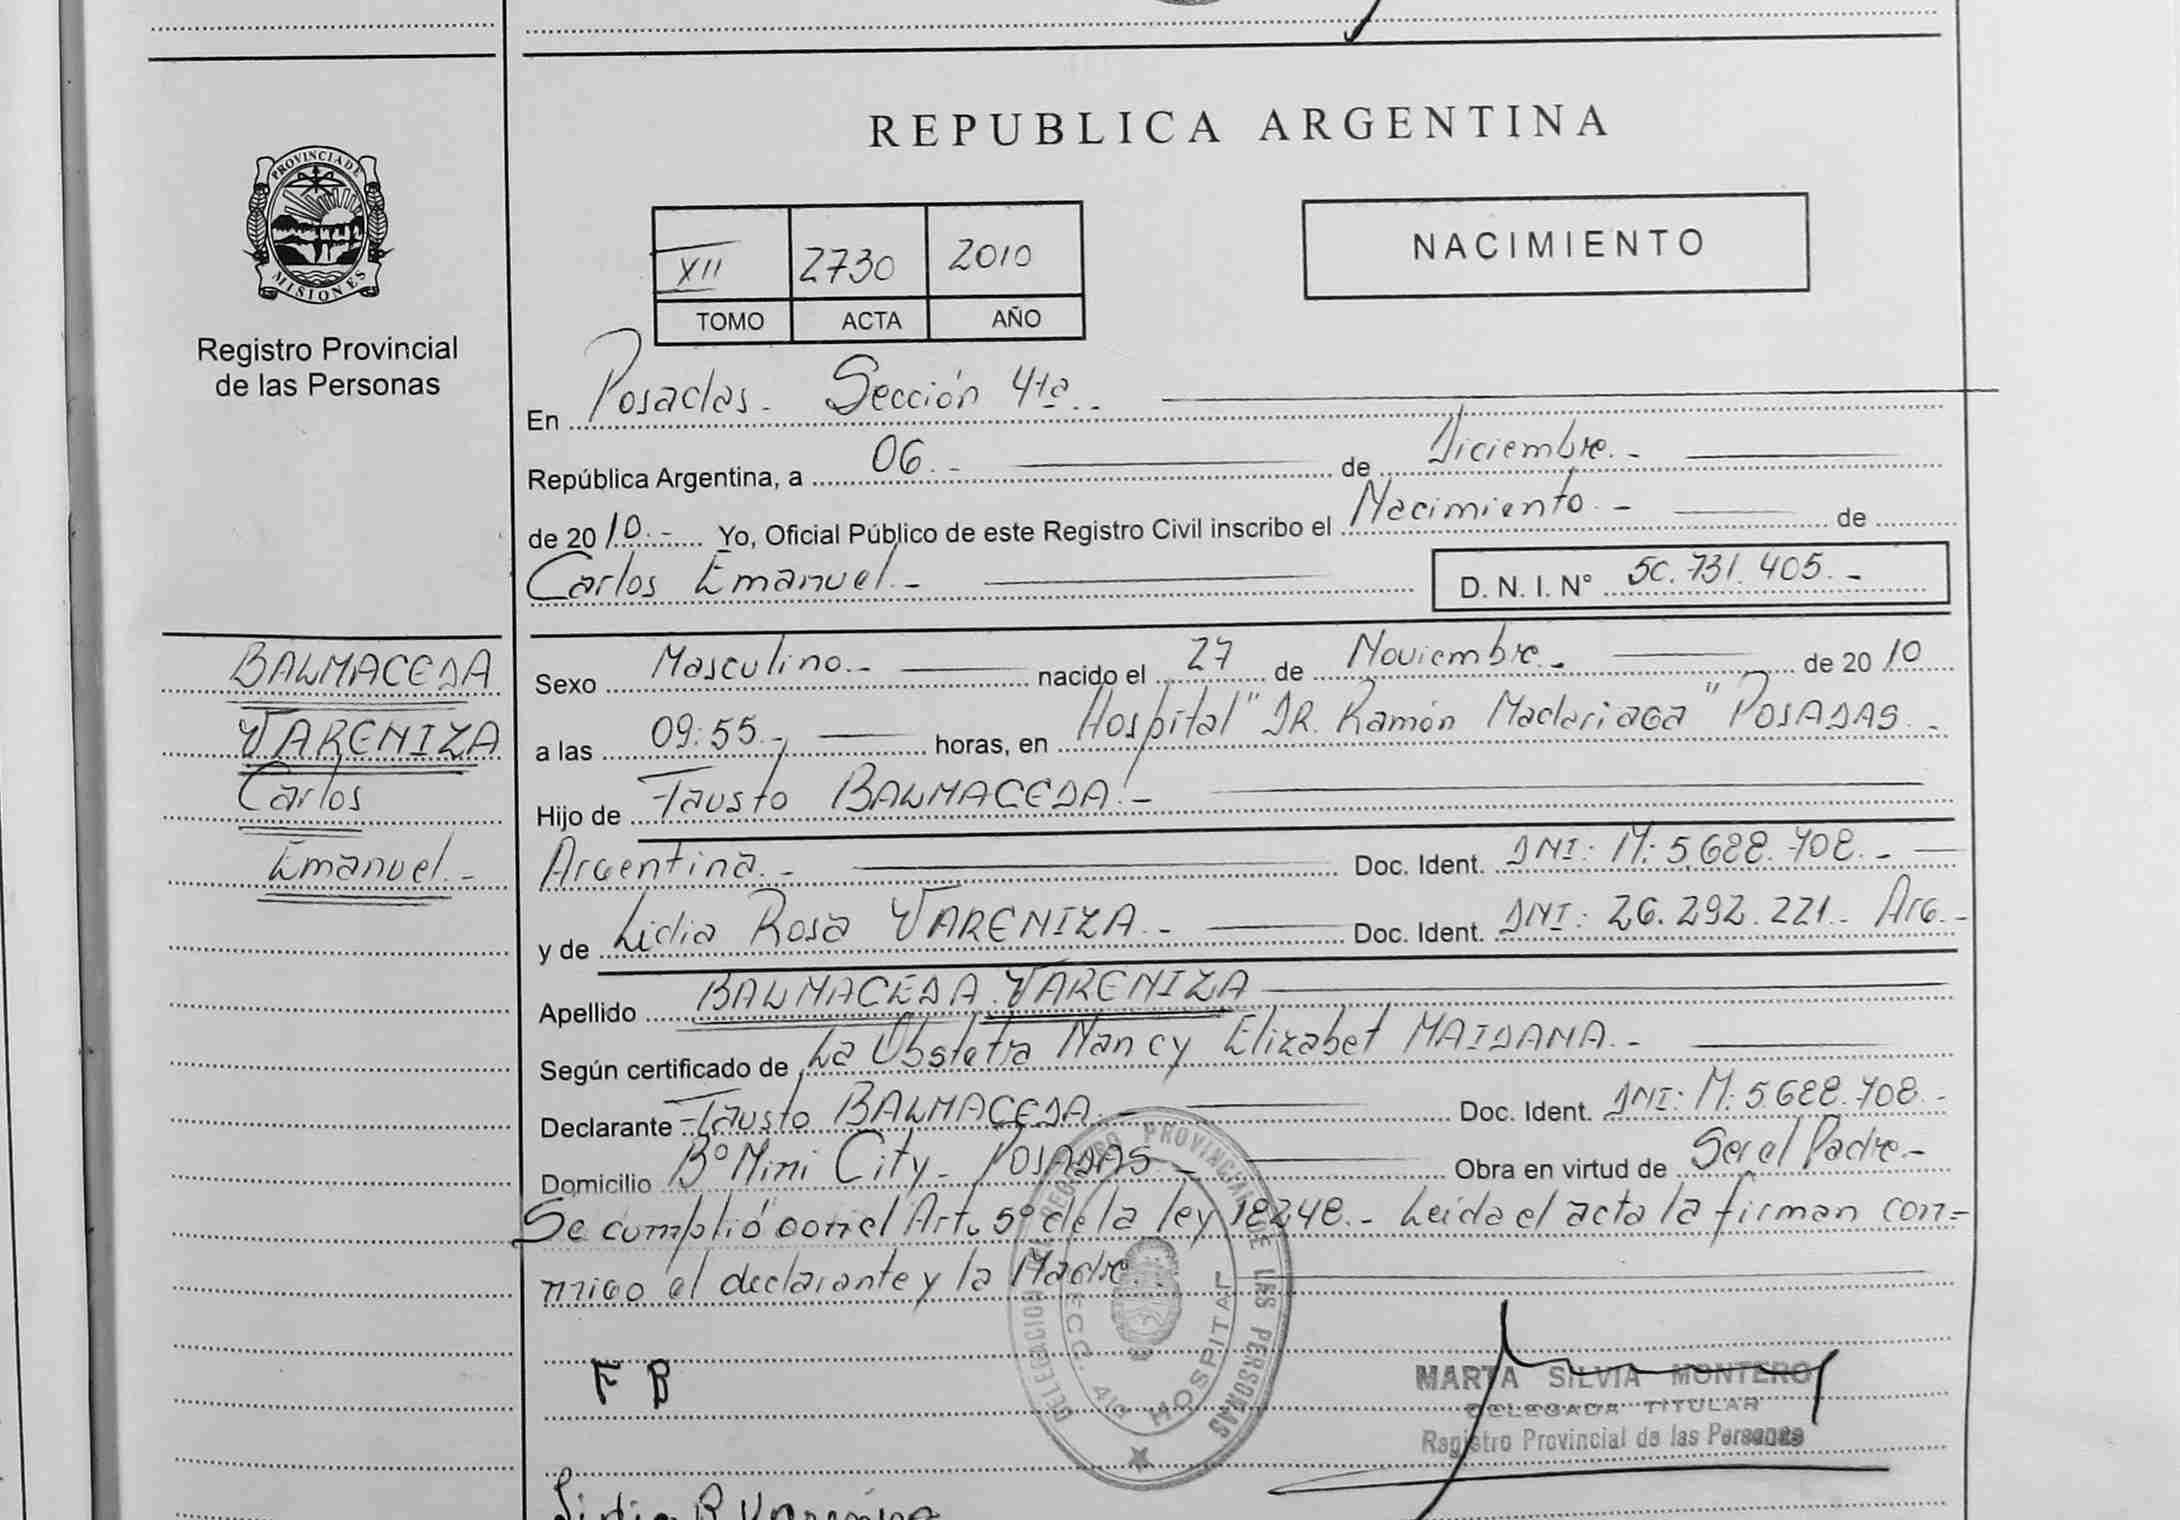 REPUBLICA ARGENTINA
PROVINCIA DE
MISIONES
Registro Provincial
de las Personas
XII 2730 2010
TOMO ACTA AÑO
NACIMIENTO
En Posadas. Sección 4ta.-
República Argentina, a 06.- de Diciembre.-
de 2010.- Yo, Oficial Público de este Registro Civil inscribo el Nacimiento.- de
Carlos Emanuel.- D. N. I. N° 50.731.405.-
BALMACEDA
VARENIZA
Carlos
Emanuel.-
Sexo Masculino.- nacido el 27 de Noviembre.- de 2010
a las 09:55.- horas, en Hospital "DR. Ramón Madariaga" POSADAS.-
Hijo de Fausto BALMACEDA.-
Argentina.- Doc. Ident. DNI: M: 5.688.708.-
y de Lidia Rosa VARENIZA.- Doc. Ident. DNI: 26.292.221.- Arg.-
Apellido BALMACEDA VARENIZA
Según certificado de La Obstetra Nancy Elizabet MAIDANA.-
Declarante Fausto BALMACEDA.- Doc. Ident. DNI: M: 5.688.708.-
Domicilio B° Mini City- POSADAS.- Obra en virtud de Ser el Padre.-
Se cumplió con el Art. 5° de la ley 18248.- Leída el acta la firman con=
migo el declarante y la Madre.-
DELEGACION REGISTRO PROVINCIAL DE LAS PERSONAS
SECC. 4ta HOSPITAL
F B
MARTA SILVIA MONTERO
DELEGADA TITULAR
Registro Provincial de las Personas
Lidia R Vareniza